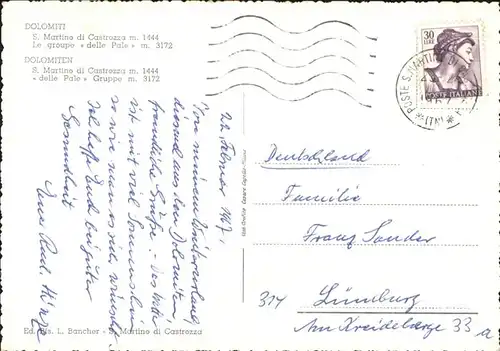 DOLOMITI
S. Martino di Castrozza m. 1444
Le groupe « delle Pale » m. 3172
DOLOMITEN
S. Martino di Castrozza m. 1444
« delle Pale » Gruppe m. 3172
30
LIRE
POSTE ITALIANE
POSTE S. MARTINO DI
(TN)
22. Februar 1967.
Von meinem Winterurlaub
diesmal aus den Dolomiten,
freundliche Grüße. Das Wetter
ist mit viel Sonnenschein
so wie man es sich wünscht.
Ich hoffe Euch bei guter
Gesundheit
Euer Rud.
Deutschland
Familie
Franz Sander
314 Lüneburg
Am Kreideberge 33 a
Ed. L. Bancher - S. Martino di Castrozza